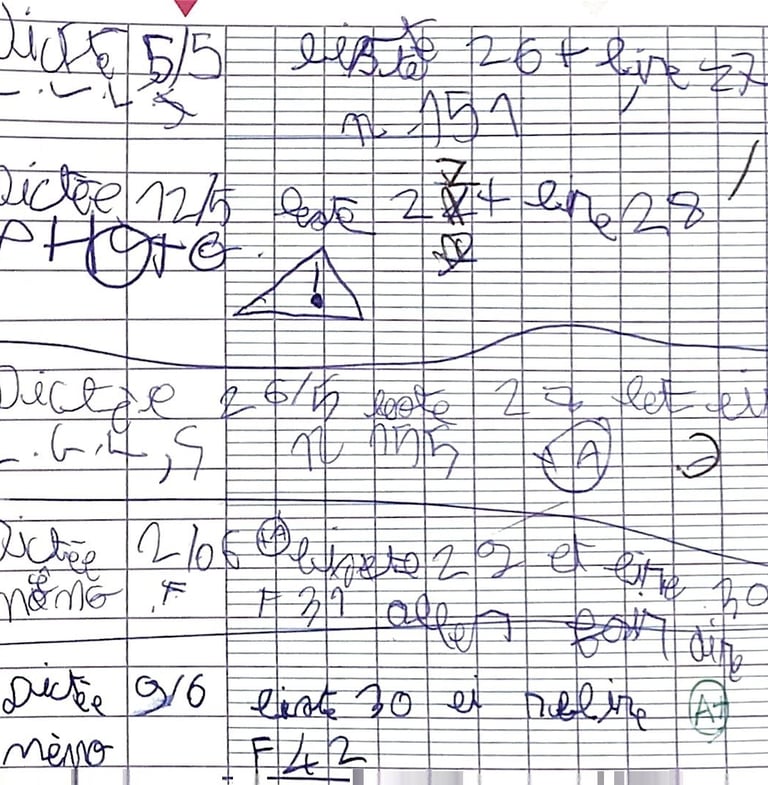 Dictée 5/5 liste 26 + lire 27
n 151
Dictée 12/5 liste 27 + lire 28
PHOTO
!
Dictée 26/5 liste 27 et
n 155 +A
Dictée 2/06 +A liste 29 et lire 30
mémo F F 31 aller dire
Dictée 9/6 liste 30 et relire A+
mémo F 42